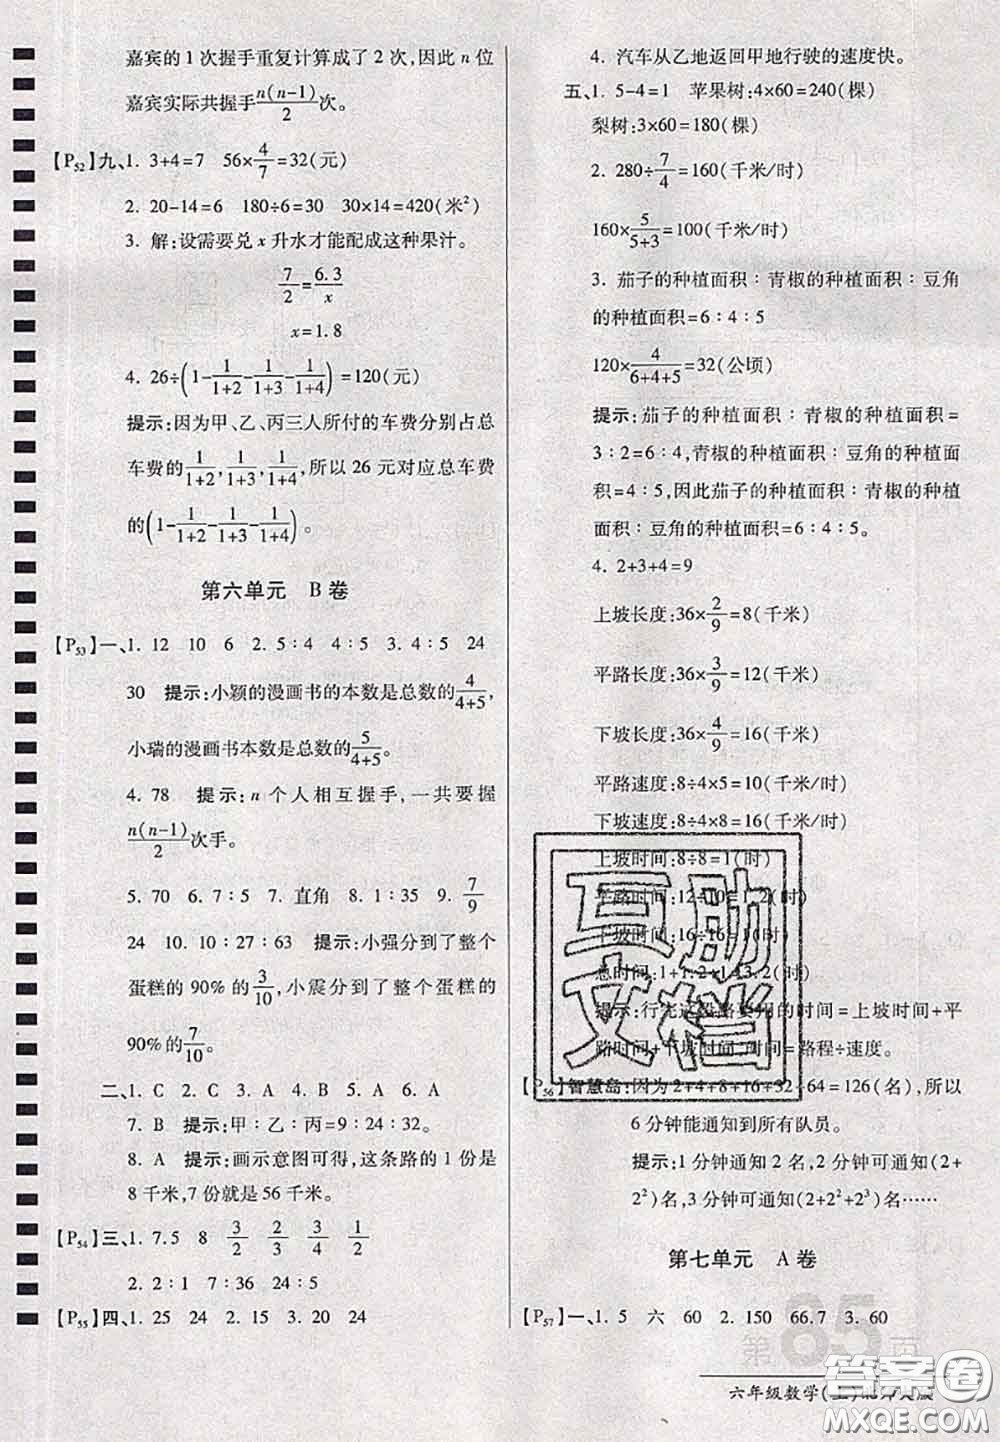 嘉宾的 1 次握手重复计算成了 2 次,因此 n 位
嘉宾实际共握手n(n-1)/2次。
【P52】九、1. 3+4=7 56×4/7=32(元)
2. 20-14=6 180÷6=30 30×14=420(米²)
3. 解:设需要兑 x 升水才能配成这种果汁。
7/2=6.3/x
x=1.8
4. 26÷(1-1/(1+2)-1/(1+3)-1/(1+4))=120(元)
提示:因为甲、乙、丙三人所付的车费分别占总
车费的1/(1+2),1/(1+3),1/(1+4),所以 26 元对应总车费
的(1-1/(1+2)-1/(1+3)-1/(1+4))。
第六单元 B 卷
【P53】一、1. 12 10 6 2. 5∶4 4∶5 3. 4∶5 24
30 提示:小颖的漫画书的本数是总数的4/(4+5),
小瑞的漫画书本数是总数的5/(4+5)。
4. 78 提示:n 个人相互握手,一共要握
n(n-1)/2次手。
5. 70 6. 7∶5 7. 直角 8. 1∶35 9. 7/9
24 10. 10∶27∶63 提示:小强分到了整个
蛋糕的 90%的3/10,小震分到了整个蛋糕的
90%的7/10。
二、1. C 2. C 3. A 4. C 5. A 6. A
7. B 提示:甲∶乙∶丙=9∶24∶32。
8. A 提示:画示意图可得,这条路的 1 份是
8 千米,7 份就是 56 千米。
【P54】三、1. 7.5 8 3/2 2/3 3/4 1/2
2. 2∶1 7∶36 24∶23
【P55】四、1. 25 24 2. 15 3. 20 24
4. 汽车从乙地返回甲地行驶的速度快。
五、1. 5-4=1 苹果树:4×60=240(棵)
梨树:3×60=180(棵)
2. 280÷7/4=160(千米/时)
160×5/(5+3)=100(千米/时)
3. 茄子的种植面积∶青椒的种植面积∶豆角
的种植面积=6∶4∶5
120×4/(6+4+5)=32(公顷)
提示:茄子的种植面积∶青椒的种植面积=
3∶2=6∶4,青椒的种植面积∶豆角的种植面积
=4∶5,因此茄子的种植面积∶青椒的种植
面积∶豆角的种植面积=6∶4∶5。
4. 2+3+4=9
上坡长度:36×2/9=8(千米)
平路长度:36×3/9=12(千米)
下坡长度:36×4/9=16(千米)
平路速度:8÷4×5=10(千米/时)
下坡速度:8÷4×8=16(千米/时)
上坡时间:8÷8=1(时)
平路时间:12÷10=1.2(时)
下坡时间:16÷16=1(时)
总时间:1+1.2+1=3.2(时)
提示:行完这段路要用的时间=上坡时间+平
路时间+下坡时间,时间=路程÷速度。
【P56】智慧岛:因为 2+4+8+16+32+64=126(名),所以
6 分钟能通知到所有队员。
提示:1 分钟通知 2 名,2 分钟可通知(2+
2²)名,3 分钟可通知(2+2²+2³)名……
第七单元 A 卷
【P57】一、1. 5 六 60 2. 150 66.7 3. 60
第 85 页
六年级数学(上)北师大版
互助
文档
答案圈
MXQE.COM